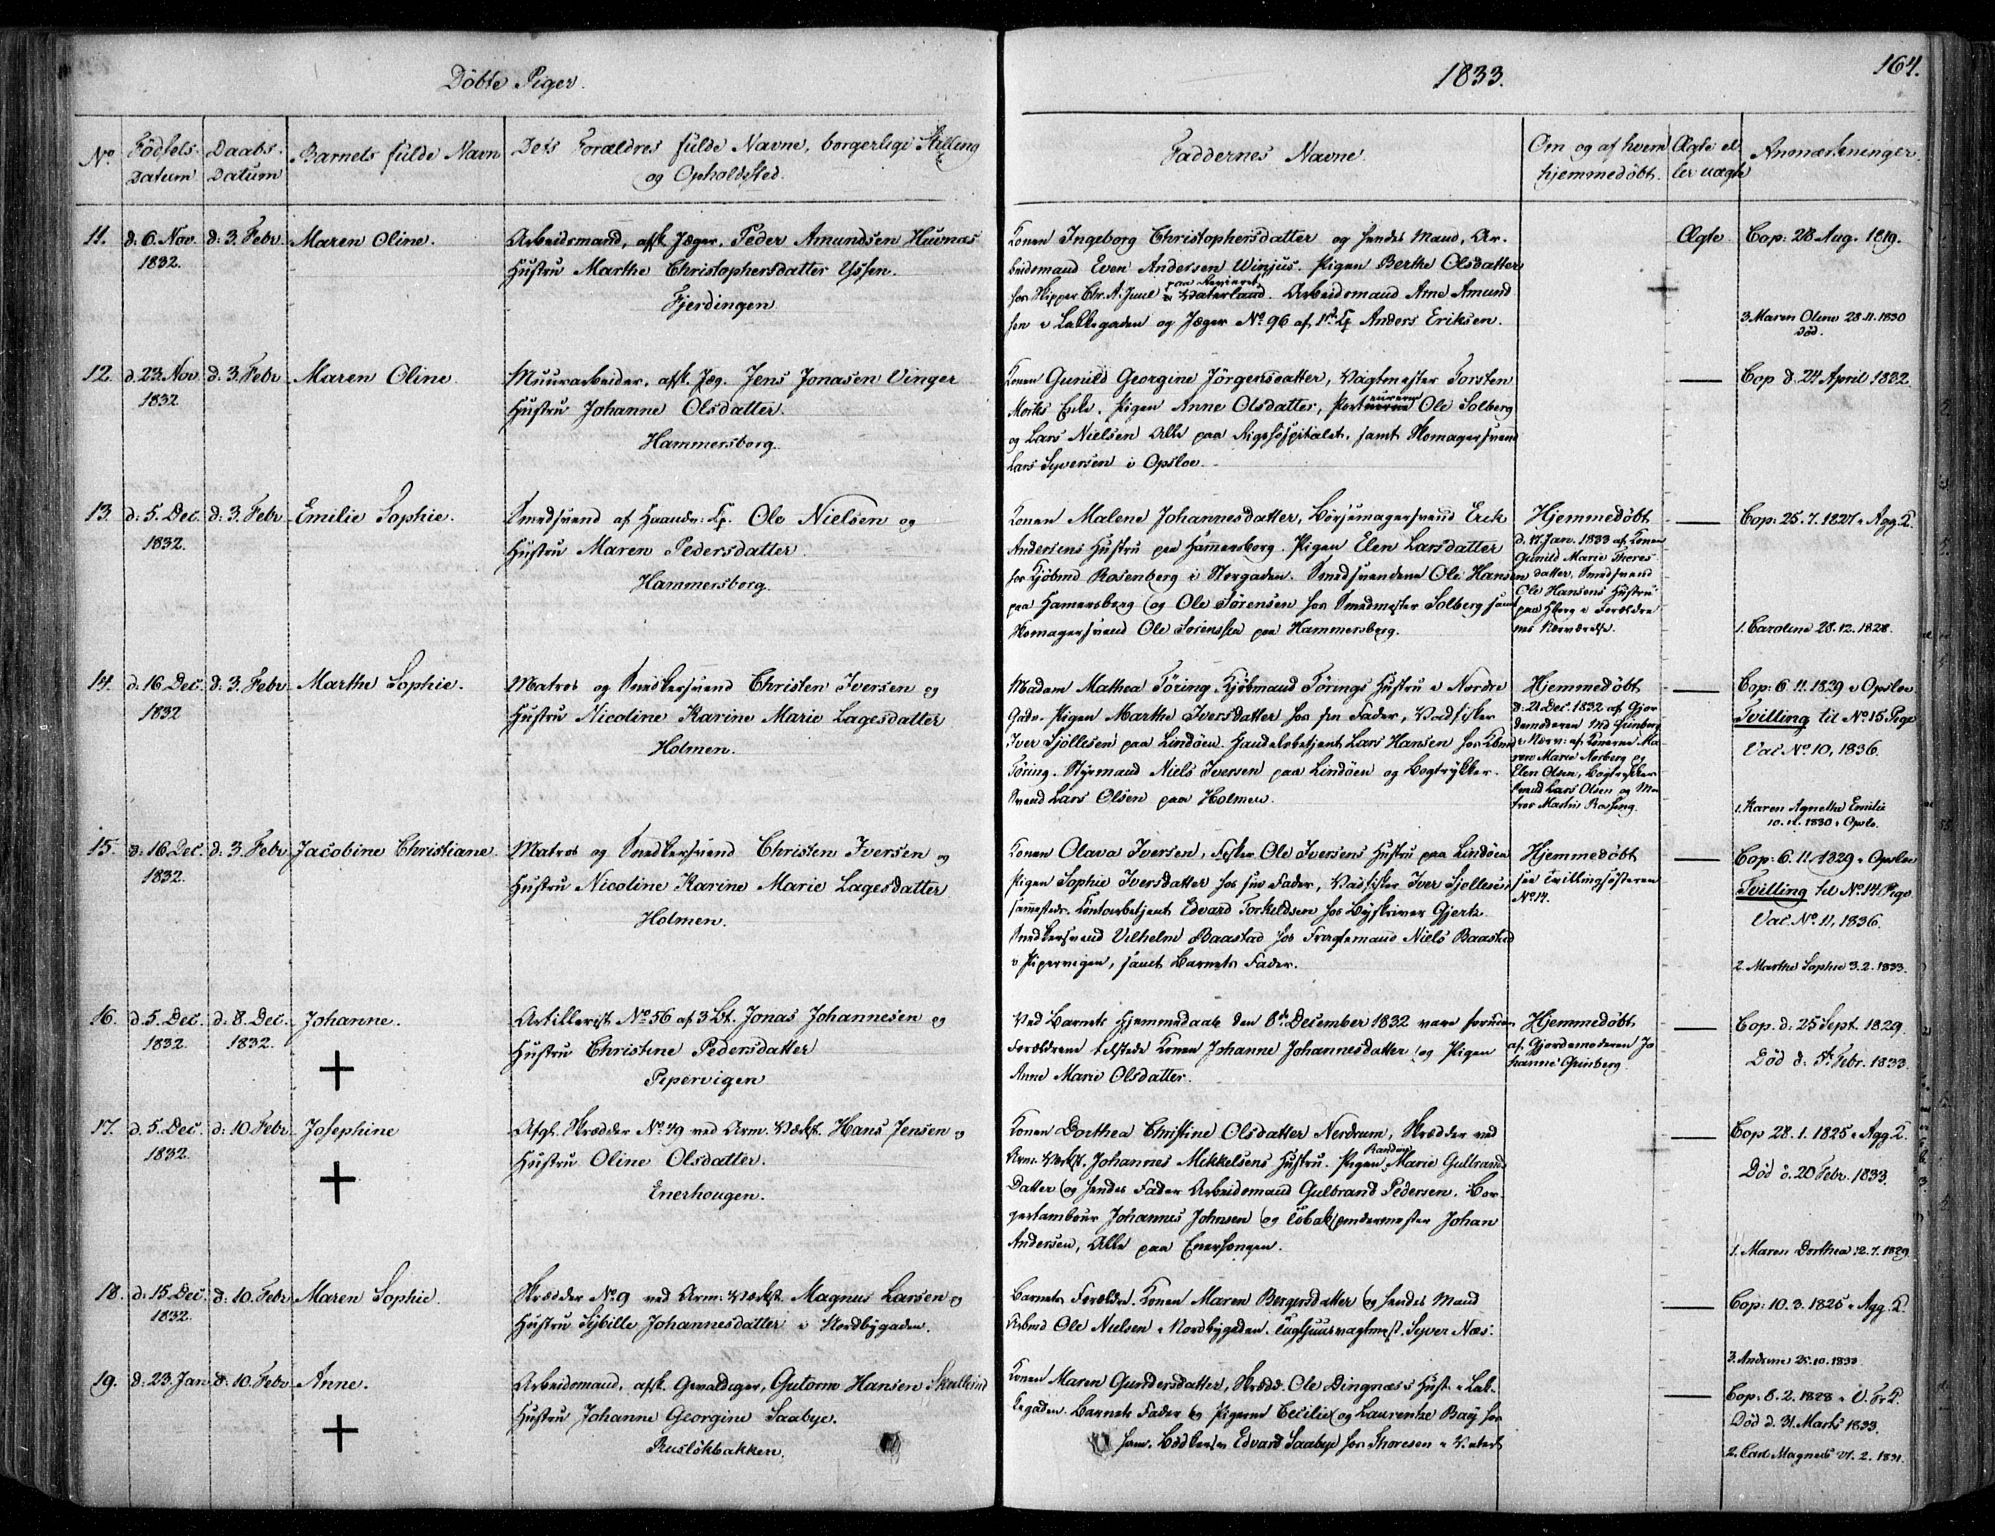 Döbte Piger.
1833.
164.
No
Födsels-
Datum
Daabs-
Datum
Barnets fulde Navn
Dets Forældres fulde Navne, borgerlige Stilling
og Opholdsted.
Faddernes Navne.
Om og af hvem
hjemmedöbt.
Ægte el-
ler uægte
Anmærkninger.
11. d. 6. Nov. 1832. d. 3. Febr. Maren Oline.
Arbeidsmand, afsk. Jæger, Peder Amundsen Huvnæs
Hustru Marthe Christophersdatter Yssen.
Fjerdingen
Konen Ingeborg Christophersdatter og hendes Mand, Ar-
beidsmand Even Andersen Winjus. Pigen Berthe Olsdatter
hos Skipper Chr. A. Juul paa Vaterland. Arbeidsmand Arne Amund
sen i Lakkegaden og Jæger No 96 af Anders Eriksen.
Ægte
Cop: 28 Aug. 1819.
3. Maren Olene 28.11.1830
död.
12. d. 23. Nov. 1832 d. 3. Febr Maren Oline
Muurarbeider, afsk. Jæg. Jens Jonasen Vinger
Hustru Johanne Olsdatter.
Hammersborg.
Konen Gunild Georgine Jörgensdatter, Vagtmester Torsten
Enke. Pigen Anne Olsdatter, Ole Solberg
og Lars Nielsen Alle paa Rigshospitalet, samt Skomagersvend
Lars Syversen i Opsloe.
Cop d. 24 April 1832.
13. d. 5. Dec. 1832. d. 3. Febr Emilie Sophie.
Smedsvend af Haandv: Cp. Ole Nielsen og
Hustru Maren Pedersdatter
Hammersborg.
Konen Malene Johannesdatter, Börsemagersvend Erik
Andersens Hustru paa Hammersborg. Pigen Elen Larsdatter
hos Kjöbmd Rosenberg i Storgaden. Smedsvendene Ole Hansen
paa Hamersborg og Ole Sörensen hos Smedmester Solberg samt
Skomagersvend Ole Sörenssen paa Hammersborg.
Hjemmedöbt
d. 17. Jan. 1833 af Konen
Gunild Marie Thores-
datter, Smedsvend
Ole Hansens Hustru
paa Hberg i Forældre
nes Nærværelse.
Cop: 25.7.1827 i Agg. K.
1. Caroline 28.12.1828.
14. d. 16 Dec. 1832 d. 3. Febr. Marthe Sophie.
Matros og Snedkersvend Christen Iversen og
Hustru Nicoline Karine Marie Lagesdatter
Holmen.
Madam Mathea Töring, Kjöbmand Törings Hustru i Nordre
Gade. Pigen Marthe Iversdatter hos sin Fader, Vadfisker
Iver Sjöllesen paa Lindöen. Handelsbetjent Lars Hansen hos Kbmd
Töring. Styrmand Niels Iversen paa Lindöen og Bogtrykker-
svend Lars Olsen paa Holmen.
Hjemmedöbt
d. 21 Dec. 1832 af Gjor
demoderen Md Grinberg
i Nærv: af Konerne Ma-
ren Marie Norberg og
Elen Olsen, Bogtrykker
svend Lars Olsen og Ma-
tros Martin Rossing.
Cop: 6.11.1829 i Opsloe
Tvilling til No 15 Pige
Vac No 10, 1836.
1. Karen Agnethe Emilie
10.11.1830 i Opslo.
15. d. 16 Dec. 1832. d. 3. Febr. Jacobine Christiane.
Matros og Snedkersvend Christen Iversen og
Hustru Nicoline Karine Marie Lagesdatter
Holmen.
Konen Olava Iversen, Fisker Ole Iversens Hustru paa Lindöen
Pigen Sophie Iversdatter hos sin Fader, Vadfisker Iver Sjöllesen
sammesteds. Kontorbetjent Edvard Torkildsen hos Byskriver Gjertz.
Snedkersvend Vilhelm Baastad hos Fragtemand Niels Baastad
i Pipervigen, samt Barnets Fader.
Hjemmedöbt
see Tvillingsösteren
No 14.
Cop: 6.11.1829 i Opsloe
Tvilling til No 14 Pige
Vac No. 11, 1836.
2. Marthe Sophie 3.2.1833.
16. d. 5. Dec. 1832. d. 8. Dec. 1832. Johanne.
Artillerist No 56 af 3 Bt. Jonas Johannesen og
Hustru Christine Pedersdatter
Pipervigen
Ved Barnets Hjemmedaab den 8de December 1832 vare foruden
Forældrene tilstede Konen Johanne Johannesdatter og Pigen
Anne Marie Olsdatter.
Hjemmedöbt
af Gjordemoderen Jo
hanne Grinberg
Cop. d. 25 Sept. 1829.
Död d. 5te Febr. 1833.
17. d. 5. Dec. 1832. d. 10. Febr Josephine
Afgl. Skrædder No 49 ved Arm. Værkst. Hans Jensen og
Hustru Oline Olsdatter.
Enerhougen.
Konen Dorthea Christine Olsdatter Nerdrum, Skrædder ved
Arm. Værkst. Johannes Mikkelsens Hustru. Pigen Randine Marie Gulbrands
Datter og hendes Fader Arbeidsmand Gulbrand Pedersen. Bor-
gertambour Johannes Johnsen og Tobakspindermester Johan
Andersen, Alle paa Enerhougen.
Cop 28.1.1825 i Agg. K.
Död d. 20 Febr. 1833.
1. Maren Dorthea 12.7.1829
18. d. 15. Dec 1832. d. 10. Febr Maren Sophie.
Skrædder No 9 ved Arm. Værkst. Magnus Larsen og
Hustru Sybille Johannesdatter i Nordbygaden.
Barnets Forældre. Konen Maren Bergersdatter og hendes Mand
Arbmd Ole Nielsen i Nordbygaden. Tugthuusvagtmest. Syver Næs.
Cop: 10.3.1825 i Agg. K.
3. Andrine 25.10.1833
19. d. 23. Jan d. 10. Febr Anne.
Arbeidsmand, afsk. Gevaldiger, Gutorm Hansen
Hustru Johanne Georgine Saabye.
Ruslökbakken.
Konen Maren Gundersdatter, Skrædd. Ole Dingnæs's Hust. i Lak-
kegaden. Barnets Fader og Pigerne Cecilie og Laurentze Baÿ hos
ham. Edvard Saabye hos Thoresen i Vaterl
Cop: 8.2.1828 i V. Fr. K.
Död d. 31. Marts 1833.
2. Carl Magnus 21.2.1831.